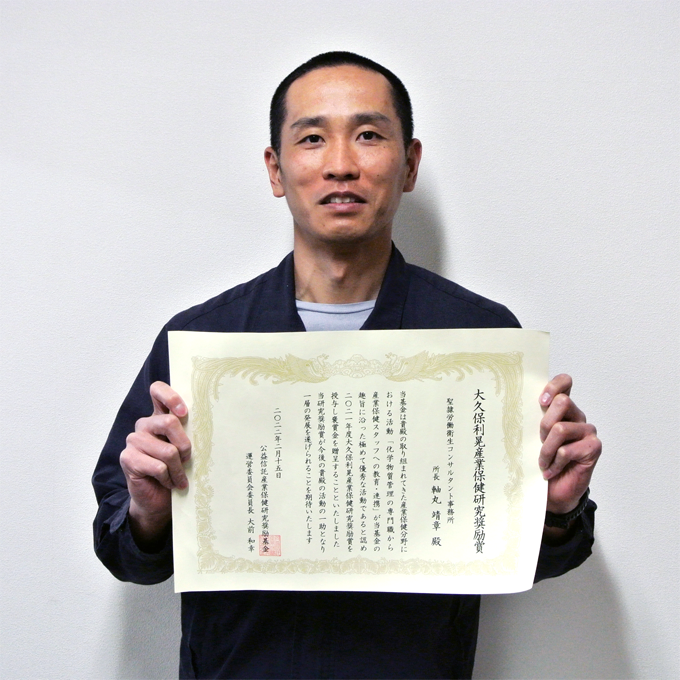 大久保利晃産業保健研究奨励賞
聖隷労働衛生コンサルタント事務所
所長 軸丸 靖章 殿
当基金は貴殿の取り組まれてきた産業保健分野に
おける活動「化学物質管理の専門職から
産業保健スタッフへの教育・連携」が当基金の
趣旨に沿った極めて優秀な活動であると認め
二〇二一年度大久保利晃産業保健研究奨励賞を
授与し褒賞金を贈呈することといたしました
当研究奨励賞が今後の貴殿の活動の一助となり
一層の発展を遂げられることを期待いたします
二〇二二年二月十五日
公益信託産業保健研究奨励基金
運営委員会委員長 大前 和幸